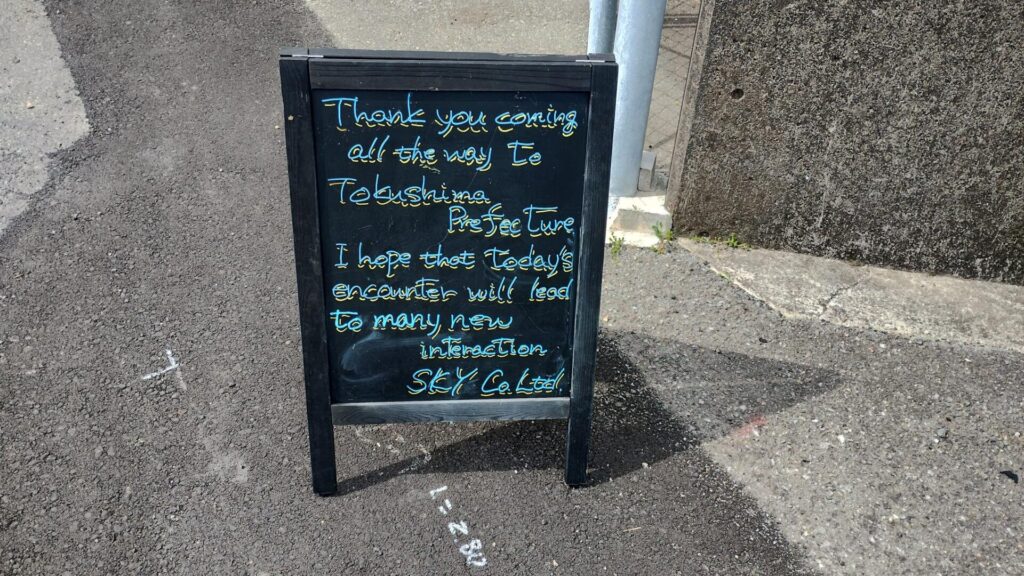 Thank you coming
all the way to
Tokushima
Prefecture
I hope that today's
encounter will lead
to many new
interaction
SKY Co.Ltd